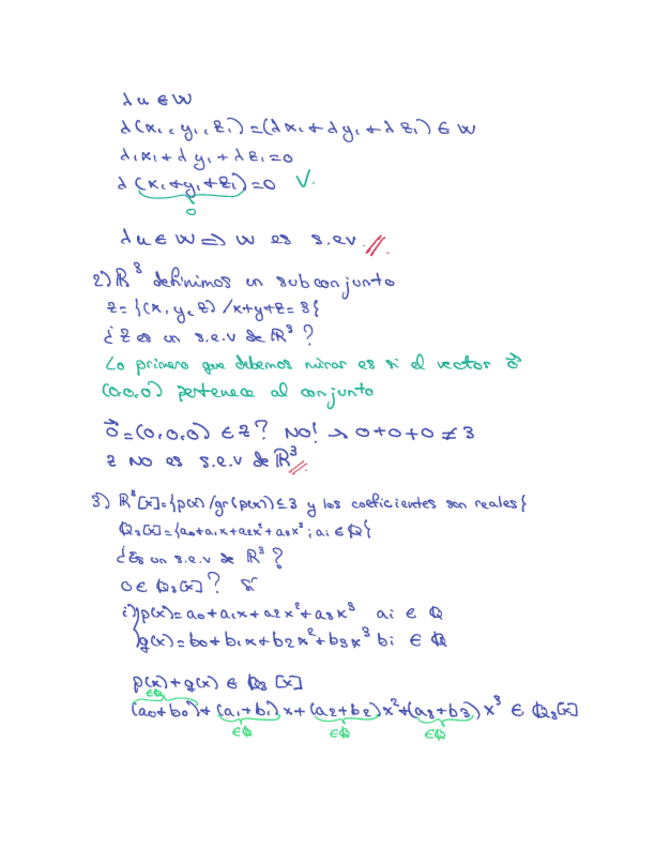 λu ∈ W
λ(x₁, y₁, z₁) = (λx₁ + λy₁ + λz₁) ∈ W
λ₁x₁ + λy₁ + λz₁ = 0
λ(x₁+y₁+z₁) = 0 V.
0
λu ∈ W ⇒ W es s.e.v.
2) ℝ³ definimos un subconjunto
z = {(x, y, z) / x+y+z = 3{
¿ Z es un s.e.v de ℝ³ ?
Lo primero que debemos mirar es si el vector 0⃗
(0,0,0) pertenece al conjunto
0⃗ = (0,0,0) ∈ Z? NO! → 0+0+0 ≠ 3
Z NO es s.e.v de ℝ³
3) ℝ³[x] = {p(x) / gr(p(x)) ≤ 3 y los coeficientes son reales{
ℚ₃[x] = {a₀+a₁x+a₂x²+a₃x³ ; ai ∈ ℚ{
¿Es un s.e.v de ℝ³ ?
0 ∈ ℚ₃[x] ? Sí
i) p(x) = a₀+a₁x+a₂x²+a₃x³ ai ∈ ℚ
g(x) = b₀+b₁x+b₂x²+b₃x³ bi ∈ ℚ
p(x)+g(x) ∈ ℚ₃ [x]
∈ℚ
(a₀+b₀) + (a₁+b₁)x + (a₂+b₂)x² + (a₃+b₃)x³ ∈ ℚ₃[x]
∈ℚ ∈ℚ ∈ℚ